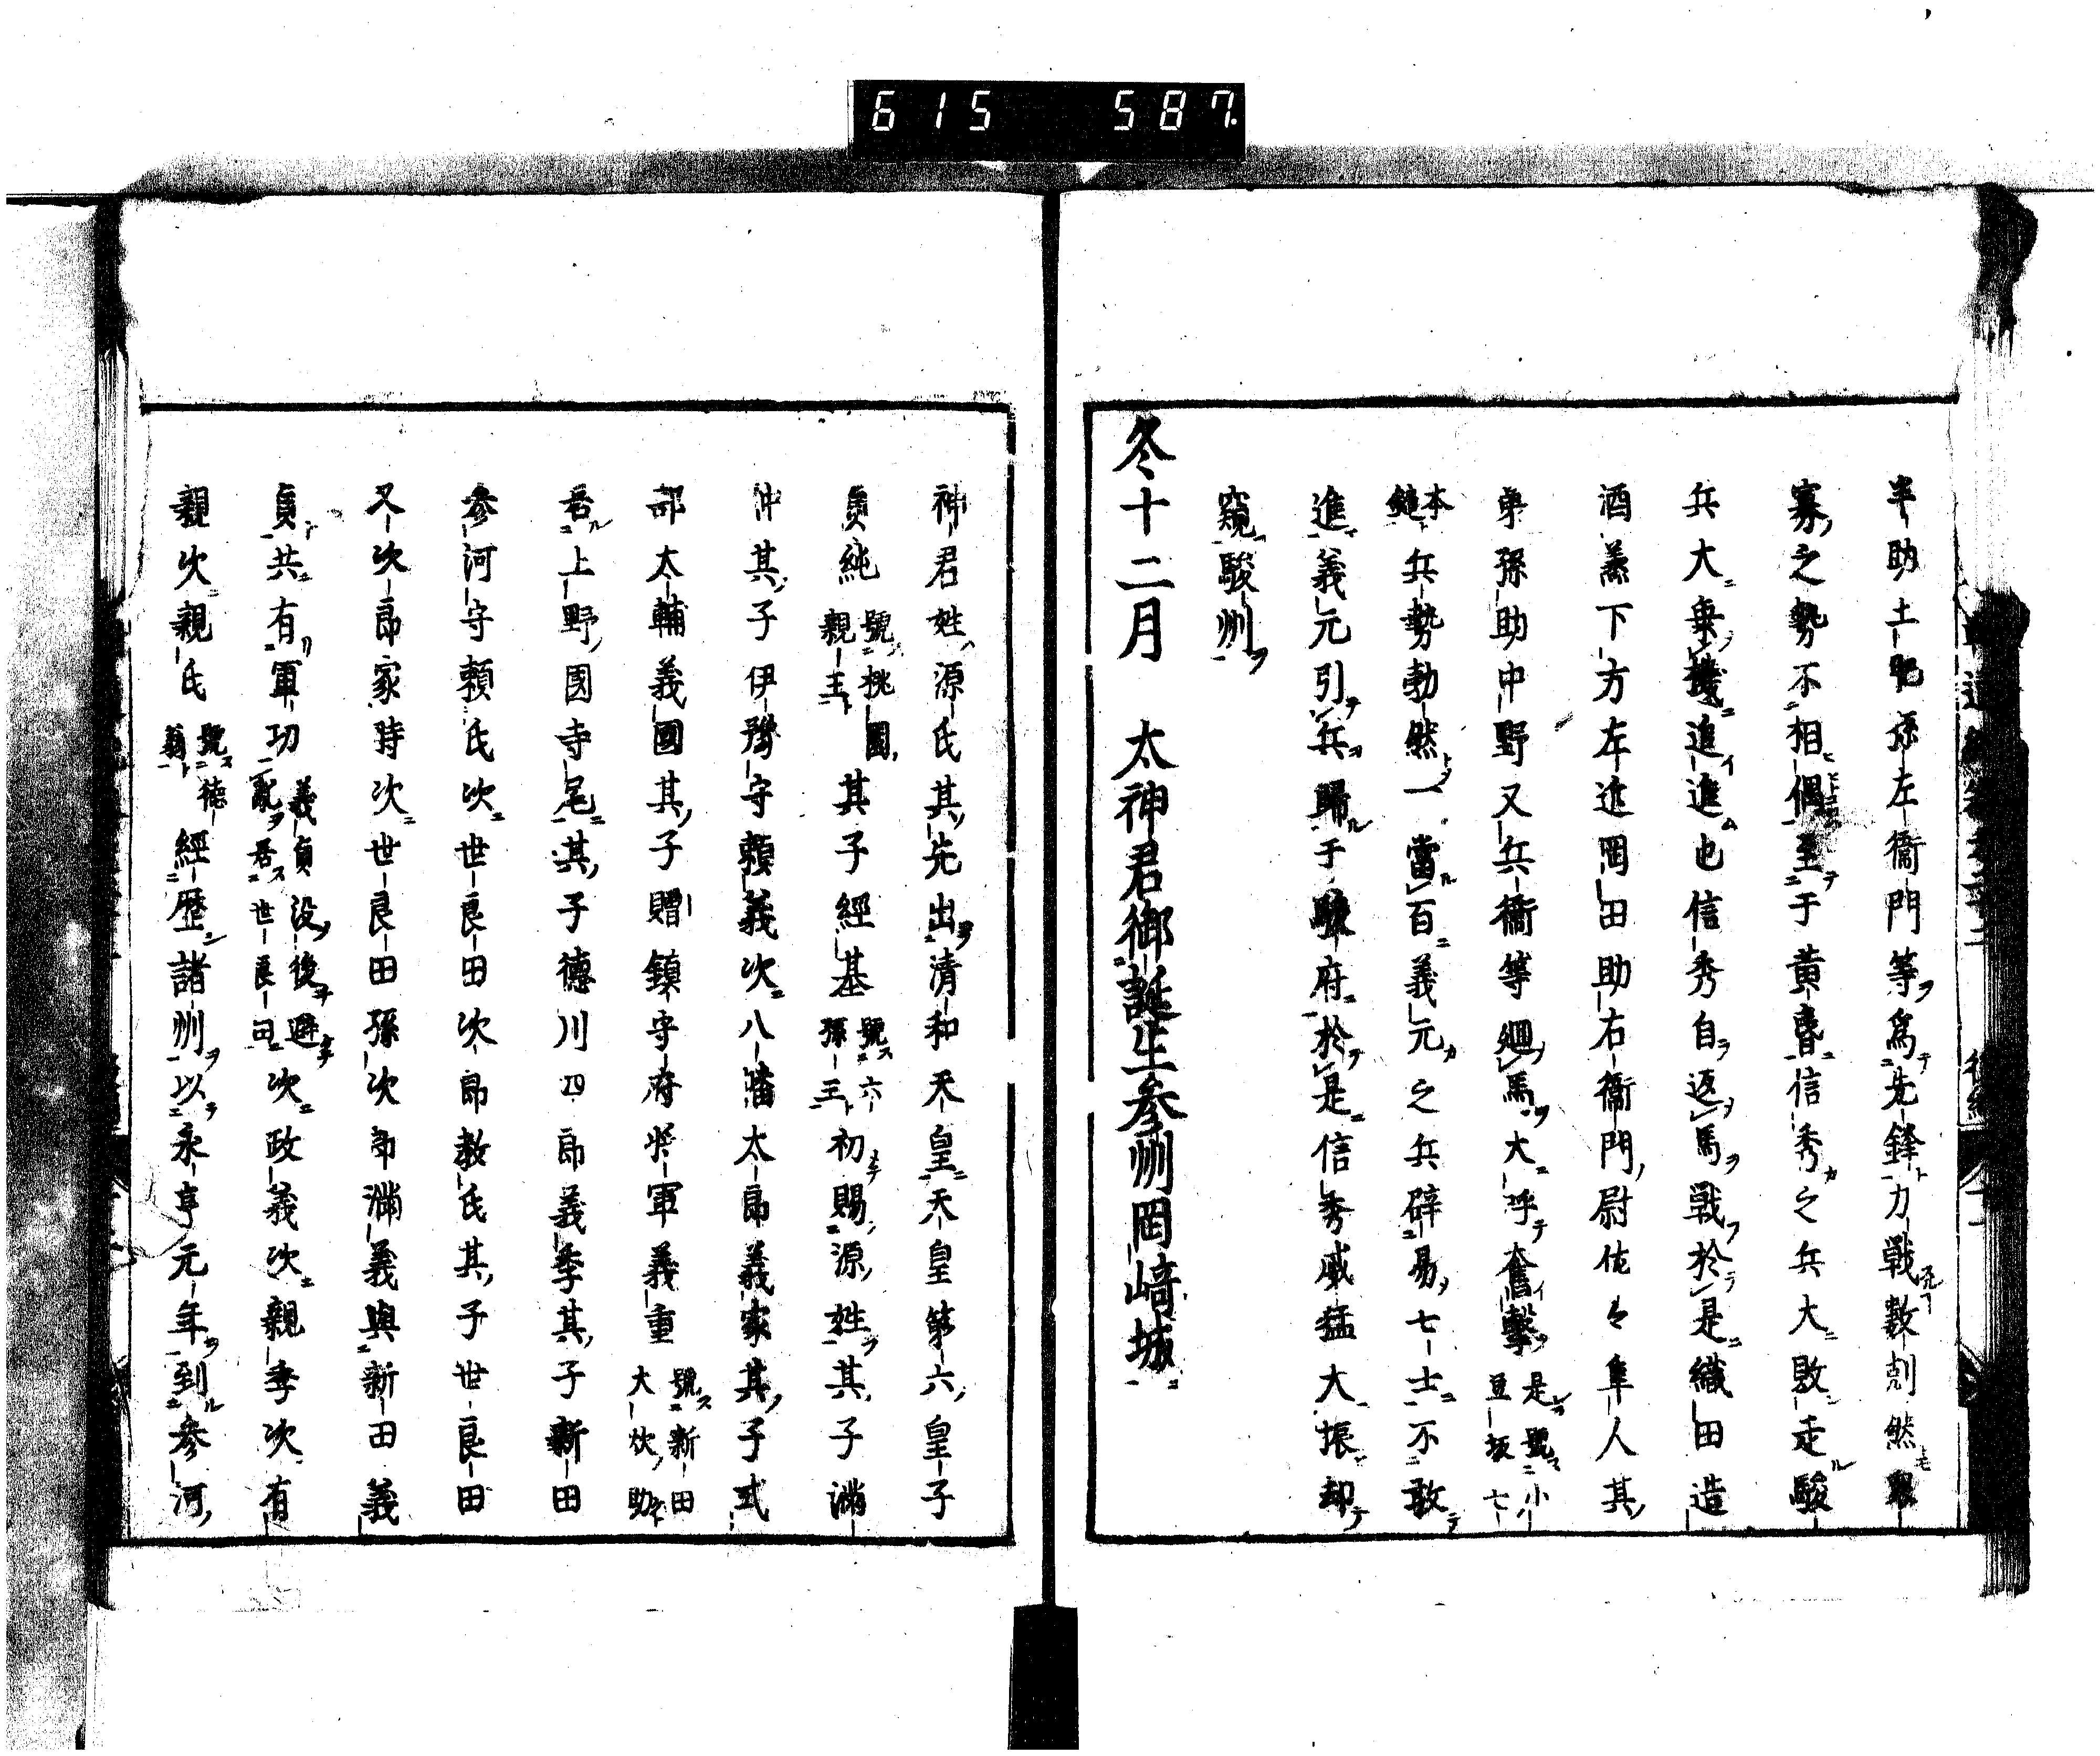 615 587
半助土肥孫左衞門等爲先鋒力戰數剋然衆
寡之勢不相偶至于黄昏信秀之兵大敗走駿
兵大乗機追進也信秀自返馬戰於是織田造
酒羕下方左近岡田助右衞門尉佐々隼人其
弟孫助中野又兵衞等廻馬大呼奮撃是號小豆坂七
本鎗兵勢勃然一當百義元之兵辟易七士不敢
進義元引兵歸于駿府於是信秀威猛大振却
窺駿州
冬十二月 太神君御誕生参州岡﨑城
神君姓源氏其先出清和天皇天皇第六皇子
貞純號桃園親王其子經基號六孫王初賜源姓其子滿
仲其子伊豫守頼義次八幡太郎義家其子式
部太輔義國其子贈鎮守府将軍義重號新田大炊助
居上野國寺尾其子德川四郎義季其子新田
参河守頼氏次世良田次郎教氏其子世良田
又次郎家時次世良田孫次郎滿義與新田義
貞共有軍功義貞没後避亂居世良田次政義次親季次有
親次親氏號德翁經歴諸州以永享元年到参河